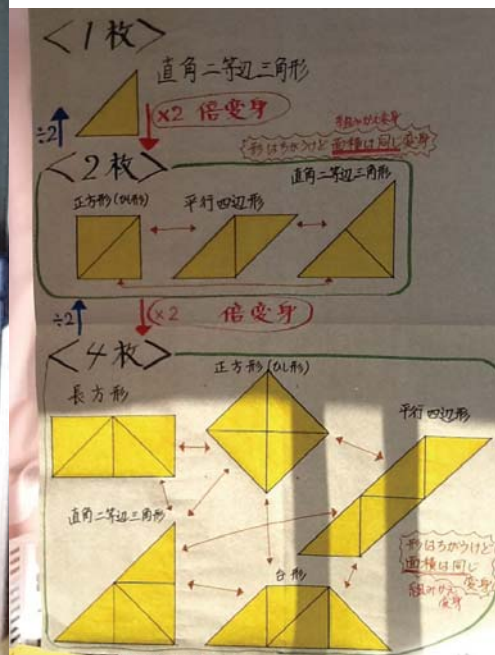 <1枚>
直角二等辺三角形
÷2
×2 倍変身
組みかえ変身
形はちがうけど面積は同じ変身
<2枚>
正方形(ひし形)
平行四辺形
直角二等辺三角形
÷2
×2 倍変身
<4枚>
長方形
正方形(ひし形)
平行四辺形
直角二等辺三角形
台形
形はちがうけど
面積は同じ
変身
組みかえ
変身